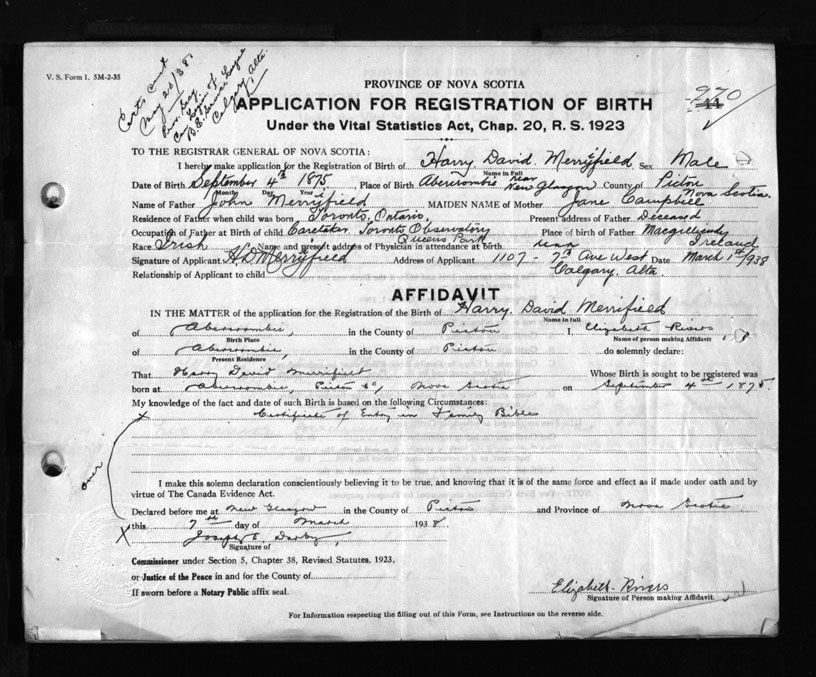 V. S. Form 1. 5M-2-35
Certs sent
May 20/38
B.E. Service League
Calgary Alta.
970
PROVINCE OF NOVA SCOTIA
APPLICATION FOR REGISTRATION OF BIRTH
Under the Vital Statistics Act, Chap. 20, R. S. 1923
TO THE REGISTRAR GENERAL OF NOVA SCOTIA:
I hereby make application for the Registration of Birth of Harry David Merryfield Sex Male
Name in Full
Date of Birth September 4th 1875, Place of Birth Abercrombie near New Glasgow County of Pictou Nova Scotia.
Months Day Year
Name of Father John Merryfield MAIDEN NAME of Mother Jane Campbell
Residence of Father when child was born Toronto, Ontario, Present address of Father Deceased
Occupation of Father at Birth of child Caretaker Toronto Observatory Queens Park Place of birth of Father Ireland
Race Irish Name and present address of Physician in attendance at birth
Signature of Applicant H D Merryfield Address of Applicant 1107 - 7th Ave West Calgary, Alta. Date March 1st/938
Relationship of Applicant to child
AFFIDAVIT
IN THE MATTER of the application for the Registration of the Birth of Harry David Merrifield
Name in full
of Abercrombie, in the County of Pictou I, Elizabeth Rivers
Birth Place Name of person making Affidavit
of Abercrombie, in the County of Pictou do solemnly declare:
Present Residence
That Harry David Whose Birth is sought to be registered was
born at Abercrombie, Pictou Co, Nova Scotia on September 4th 1875
My knowledge of the fact and date of such Birth is based on the following Circumstances:
x Certificate of Entry in Family Bible
over
I make this solemn declaration conscientiously believing it to be true, and knowing that it is of the same force and effect as if made under oath and by
virtue of The Canada Evidence Act.
Declared before me at New Glasgow in the County of Pictou and Province of Nova Scotia
this 7th day of March 1938.
X Joseph E. Darby,
Signature of
Commissioner under Section 5, Chapter 38, Revised Statutes, 1923,
or Justice of the Peace in and for the County of
If sworn before a Notary Public affix seal.
Elizabeth Rivers
Signature of Person making Affidavit.
For Information respecting the filling out of this Form, see Instructions on the reverse side.